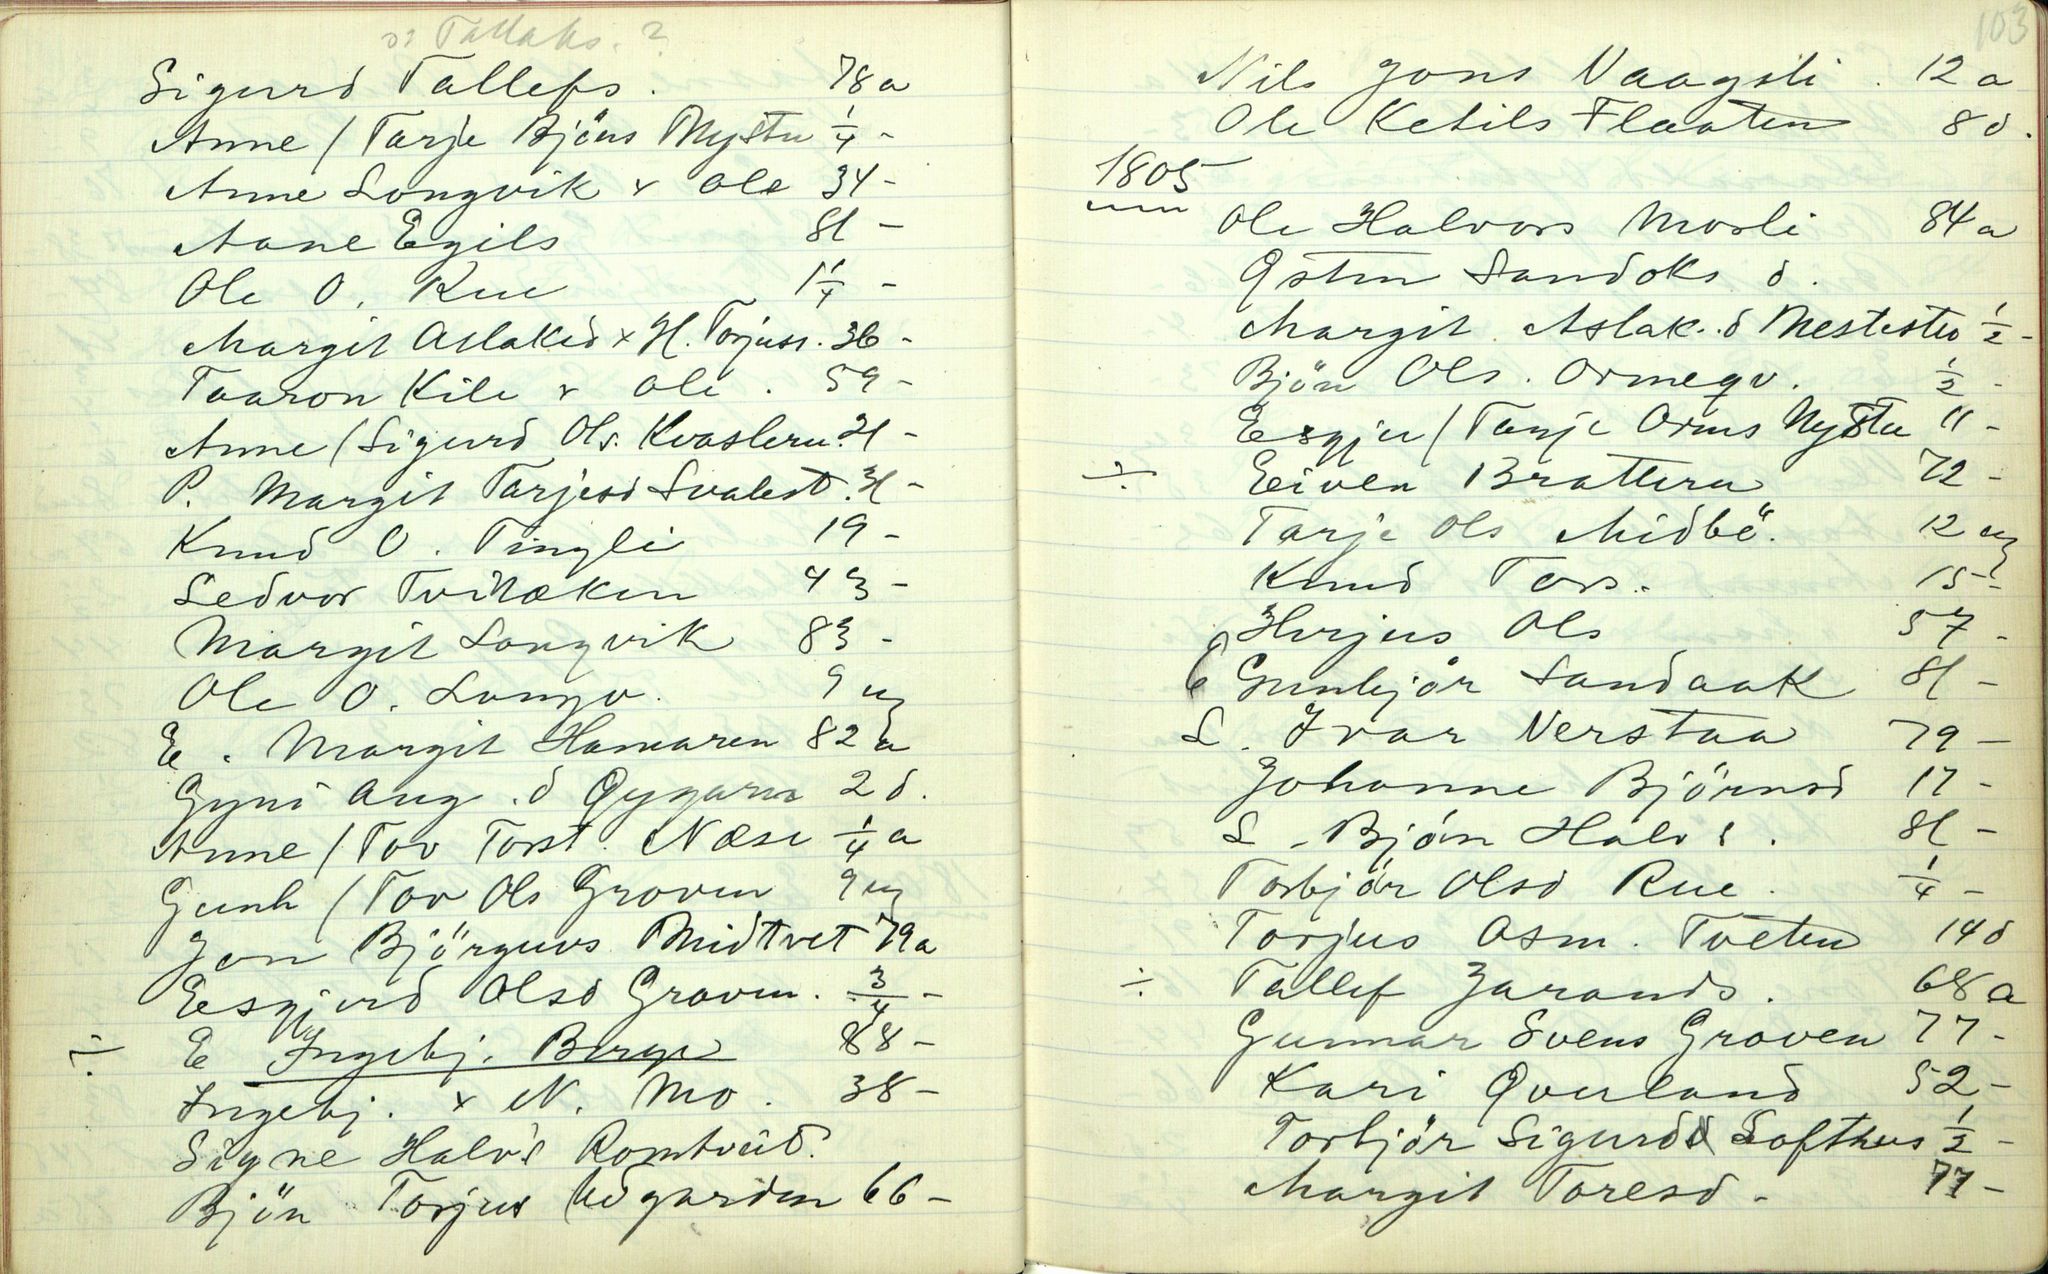 ɔ: Tallaks. ?
Sigurd Tallefs. 78 a
Anne / Tarje Bjöns Nystu 1/4 -
Anne Longvik x Ole 34 -
Aane Egils 81 -
Ole O. Rue 1 1/4 -
Margit Aslaksd x H. Torjuss. 36 -
Taaron Kile x Ole. 59 -
Anne / Sigurd Ols. Kvasleru 31 -
P. Margit Tarjesd Svalest. 31 -
Knud O. Tingli 19 -
Ledvor Tvitækin 43 -
Margit Longvik 83 -
Ole O. Longv. 9 ug
E. Margit Hamaren 82 a
Gyni Aug. d Øygarn 2 d.
Anne / Tov Torst. Næse 1/4 a
Gunh / Tov Ols Groven 9 ug
Jon Björguvs Midtvet 79 a
Eesgjerd Olsd Groven. 3/4 -
÷ E Ingebj. Berge 88 -
Ingebj. x N. Mo. 38 -
Signe Halvs Romtveid.
Bjön Torjus Udgarden 66 -
103
Nils Jons Vaagsli. 12 a
Ole Ketils Flaaten 8 d.
1805
Ole Halvors Mosli 84 a
Østen Sandoks d.
Margit Aslak. d Nestestu 1/2 -
Bjön Ols. Ormegv. 1/2 -
Esgju / Tarje Orms Nystu 11 -
÷ Eiven Bratteru 72 -
Tarje Ols Midbö. 12 ug
Knud Tors. 15 -
Hvrjus Ols 57 -
E Gunbjör Sandaak 81 -
L. Ivar Nerstaa 79 -
Johanne Björnsd 17 -
L. Bjön Halvs. 81 -
Torbjör Olsd Rue. 1/4 -
Torjus Asm. Tveten 14 d
÷ Tallef Jarands. 68 a
Gunnar Svens Groven 77 -
Kari Øverland 52 -
Torbjör Sigurdsd Lofthus 1/2 -
Margit Toresd - 77 -